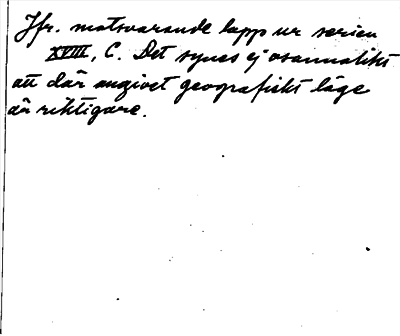 Jfr. motsvarande lapp ur serien
XVIII, C. Det synes ej osannolikt
att där angivet geografiskt läge
är riktigare.